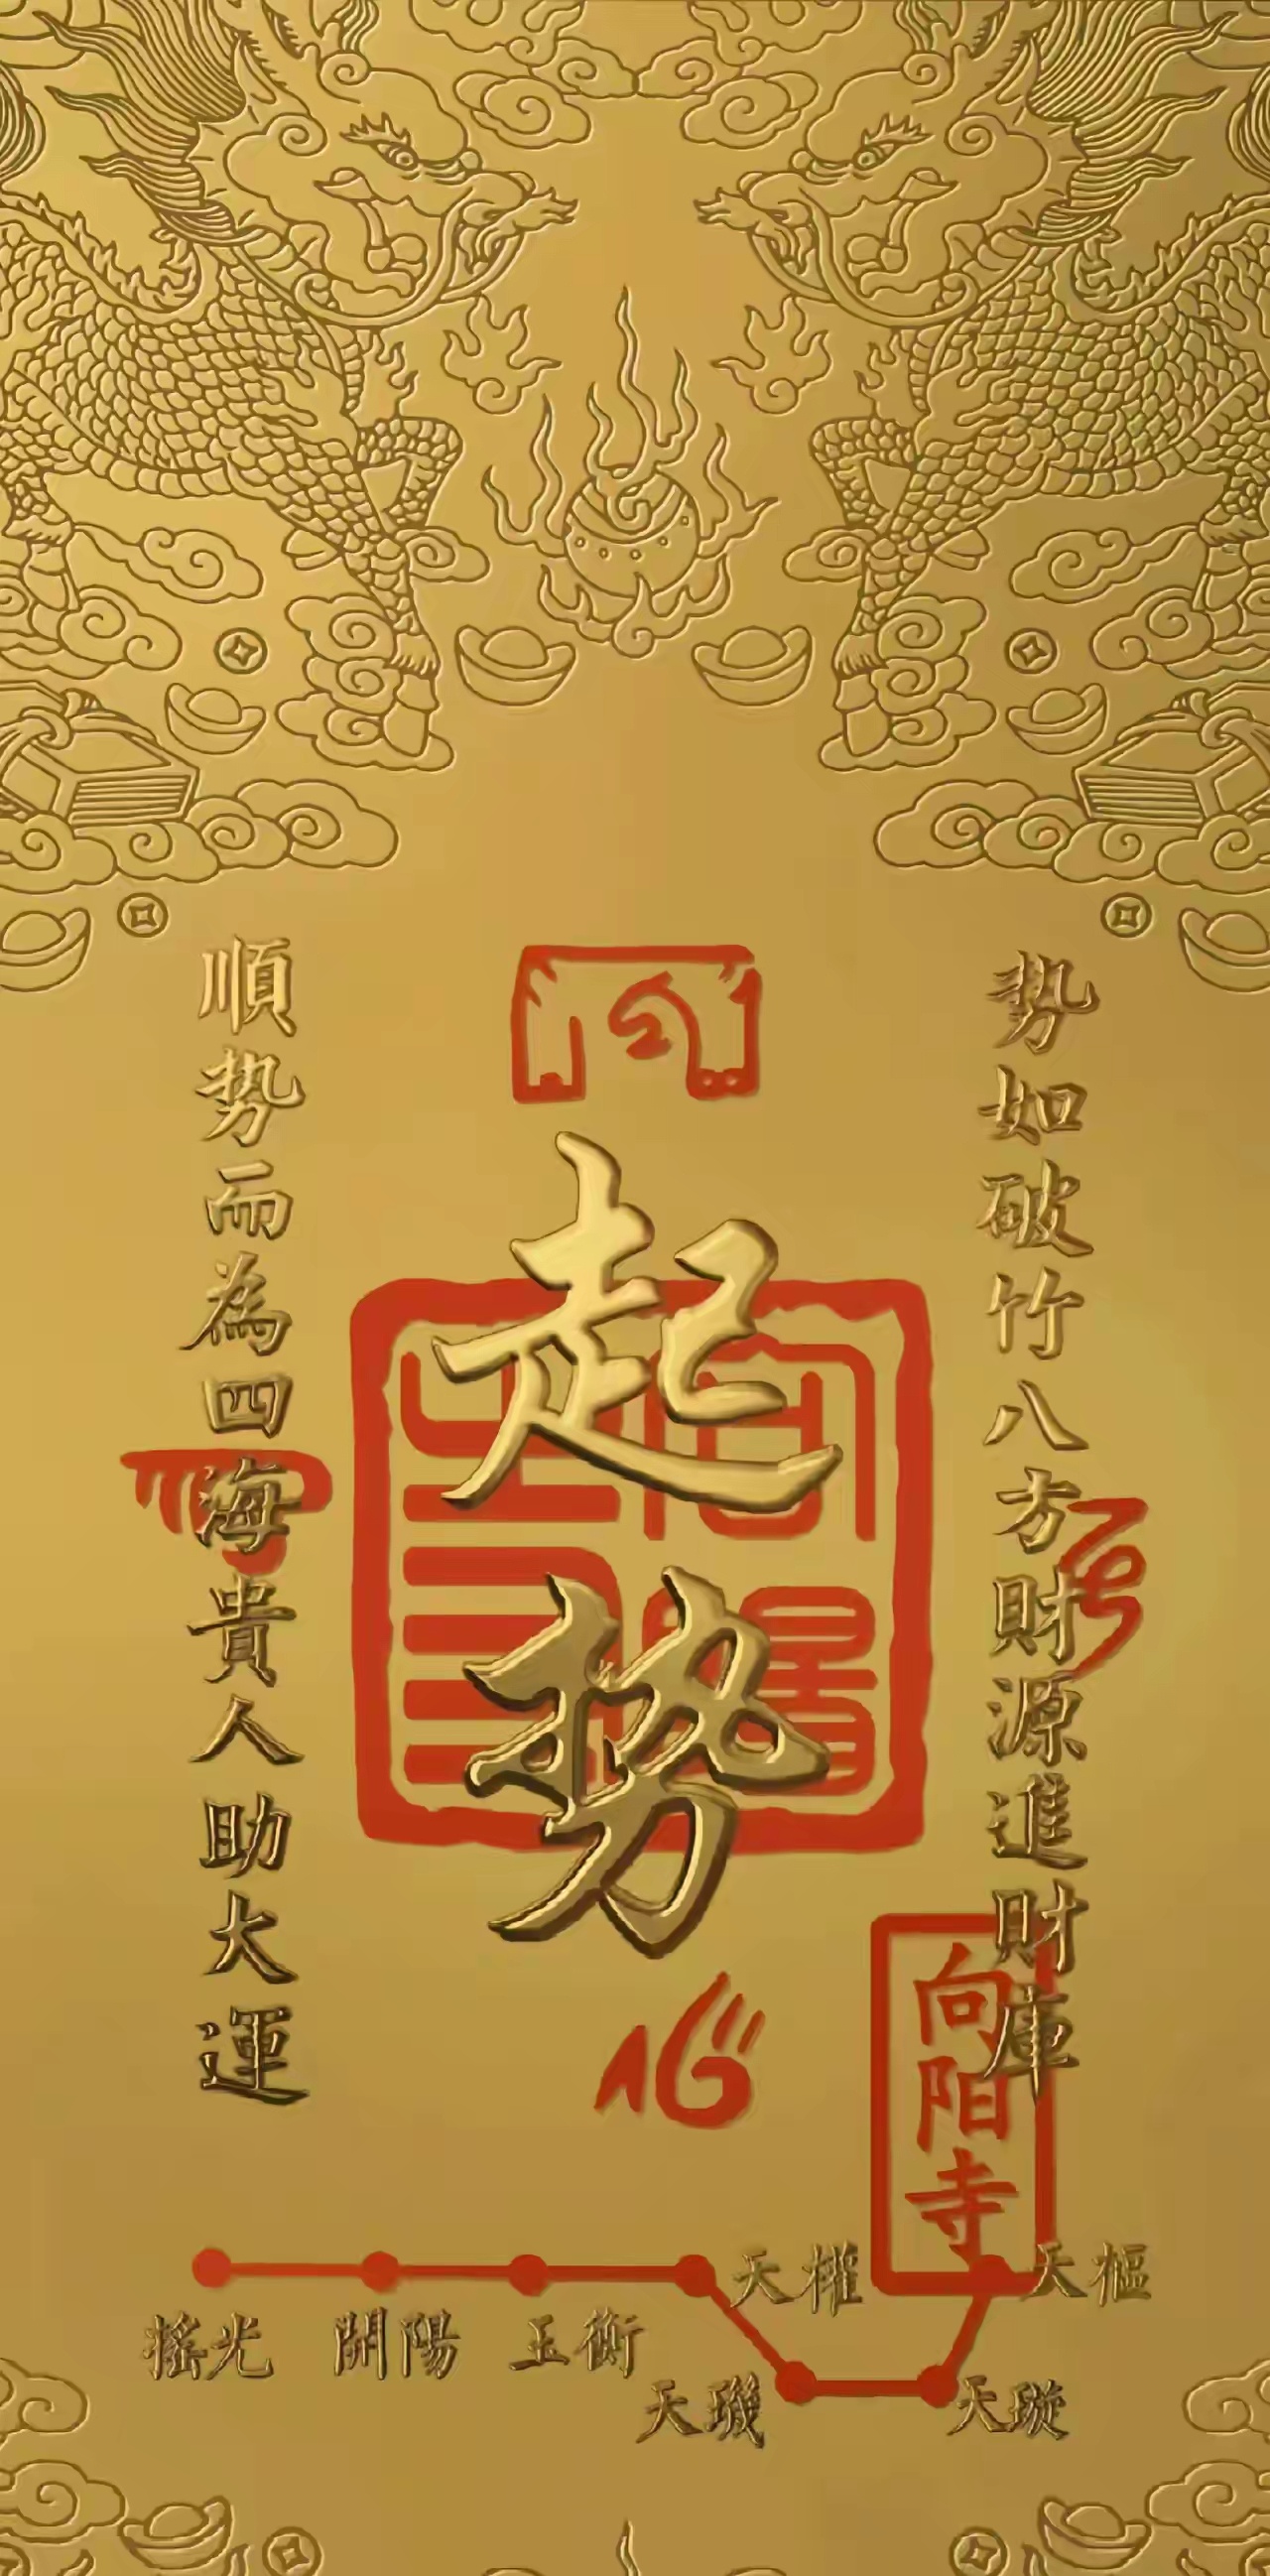 势如破竹八方財源進財庫
起势
順势而為四海貴人助大運
向阳寺
天權
天樞
搖光
開陽
玉衡
天璣
天璇